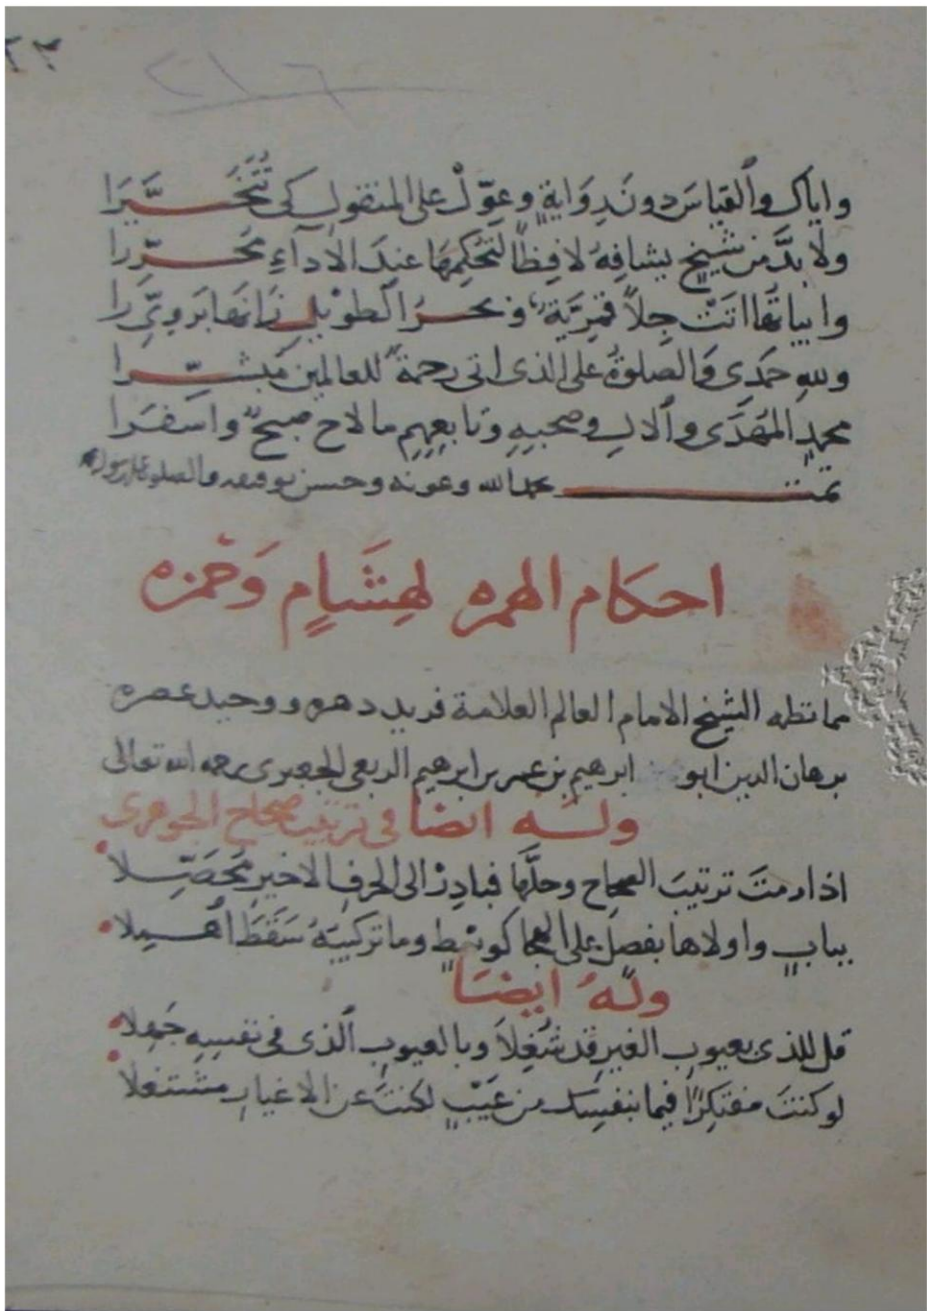 ٢٣
٢١٦
واياك والقياسَ دونَ رِوايةٍ وعوّلْ على المنقولِ كى تُتَخَيَّرَا
ولا بدَّ من شيخٍ يشافِهُ لافِظًا لتُحْكِمَهَا عندَ الاداءِ مُحرِّرا
وابياتها اتتْ جلاً قمرِيَّة وبحرُ الطويلِ
وللهِ حمدى والصلوةُ على الذى اتى رحمةً للعالمين مبشِّرا
محمدٍ المَهْدى والالِ وصحبِهِ وتابعِهِم مالاح صبحٌ واسفرَا
تمت بحمد الله وعونه وحسن توفيقه والصلوة على رسوله
احكام الهمزه لهِشَامٍ وَحمزه
مما نظمه الشيخ الامام العالم العلامة فريد دهره ووحيد عصره
برهان الدين ابو ابرهيم بن عمر بن ابرهيم الربعى الجعبرى رحمه الله تعالى
وله ايضا فى ترتيب صحاح الجوهرى
اذا رمتَ ترتيبَ الصحاح وحلَّها فبادِرْ الى الحرفِ الاخيرِ مُحَصِّلا
ببابٍ واولاها بفصلٍ على الهجا كو سَقَطَ اُهْمِلا
ولهُ ايضًا
قل للذى بعيوبِ الغيرِ قد شُغِلاَ وبالعيوبِ الذى فى نفسِهِ جَهِلا
لو كنتَ مفتكِرًا فيما بنفسِكَ من عَيْبٍ لكنتَ عن الاغيارِ مشتغلا